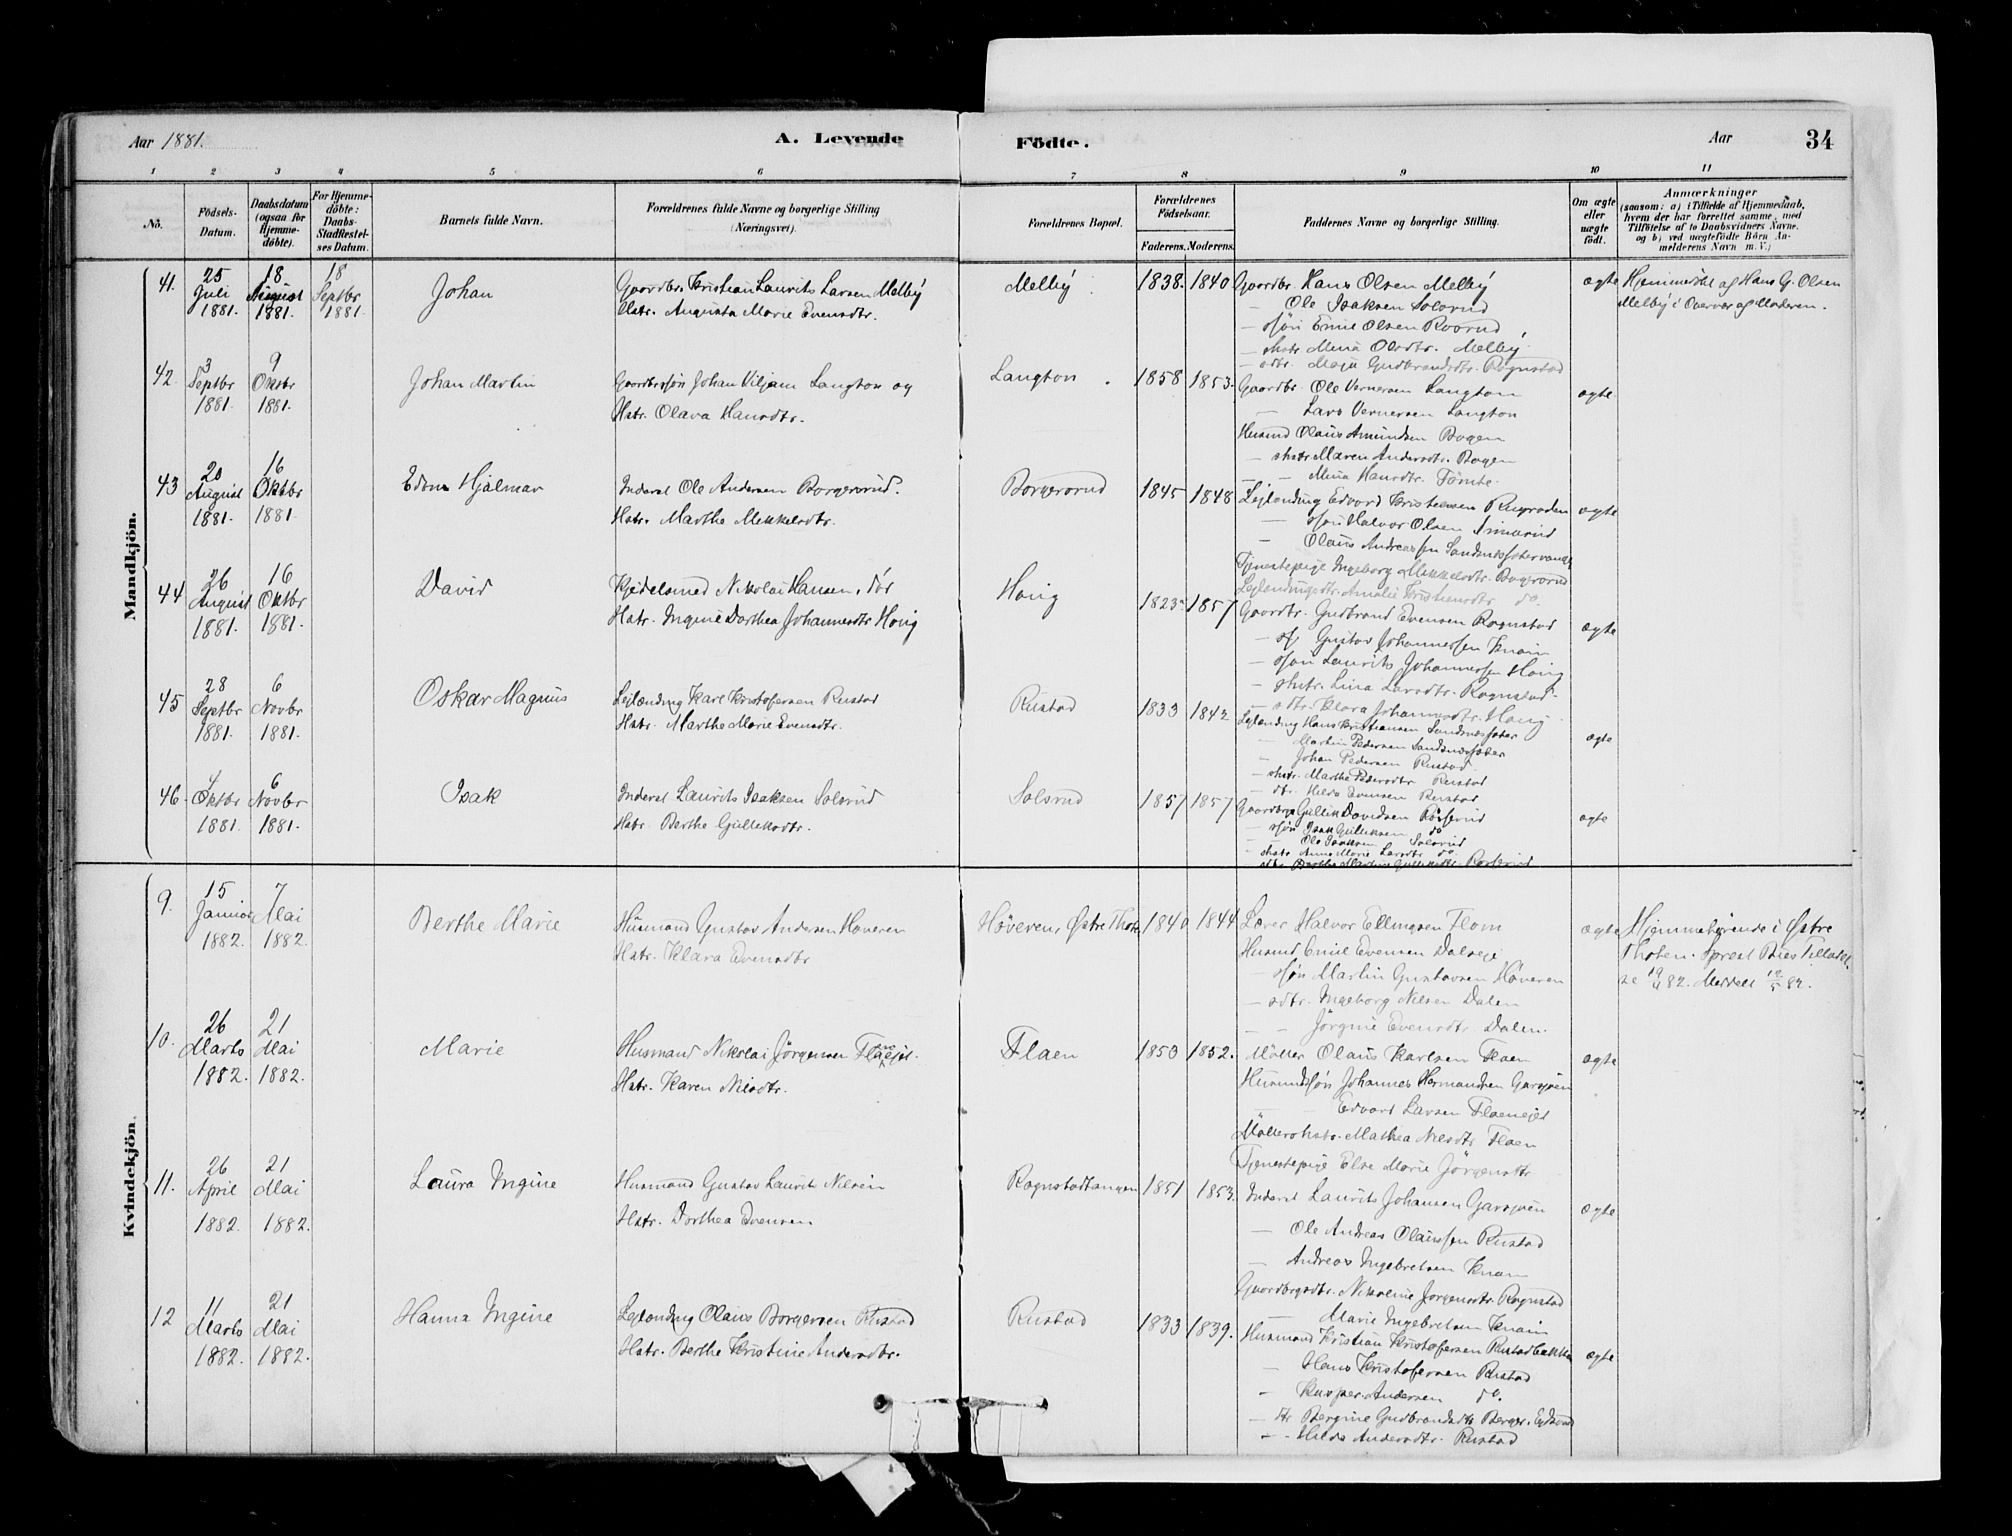 Aar 1881.
A. Levende
Födte.
Aar
34
1 2 3 4 5 6 7 8 9 10 11
No.
Födsels-Datum.
Daabsdatum (ogsaa for Hjemme-döbte).
For Hjemme-döbte: Daabs-Stadfæstel-ses Datum.
Barnets fulde Navn.
Forældrenes fulde Navne og borgerlige Stilling (Næringsvei).
Forældrenes Bopæl.
Forældrenes Födselsaar.
Faderens. Moderens.
Faddernes Navne og borgerlige Stilling.
Om ægte eller uægte födt.
Anmærkninger
(saasom: a) i Tilfælde af Hjemmedaab,
hvem der har forrettet samme, med
Tilföielse af to Daabsvidners Navne,
og b) ved uægtefödte Börn An-
melderens Navn m. V.)
Mandkjön.
41. 25 Juli 1881. 18 August 1881. 18 Septbr 1881.
Johan
Gaardbr. Kristian Laurits Larsen Melby
Hstr. Augusta Marie Evensdtr.
Melby 1838. 1840
Gaardbr. Hans Olsen Melby
— Ole Isaksen Solsrud
— søn Emil Olsen
— shstr. Mina Olsdtr. Melby
— sdtr. Maja Gudbrandsdtr. Rognstad
ægte
Hjemmedöbt af Hans G. Olsen
Melby i Overvær af Moderen.
42. 3 Septbr 1881. 9 Oktbr 1881.
Johan Martin
Gaardbrsøn Johan Viljam Langton og
Hstr. Olava Hansdtr.
Langton. 1858 1853.
Gaardbr. Ole Vernersen Langton
— Lars Vernersen Langton
Husmd Olaus Amundsen Bogen
— shstr Maren Andersdtr. Bogen
— Mina Hansdtr.
ægte
43 20 August 1881. 16 Oktbr 1881.
Edvin Hjalmar
Inderst Ole Andersen Borgerorud.
Hstr. Marthe Mikkelsdtr.
Borgerorud 1845 1848
Leilending Edvard Kristiansen
— søn Halvor Olsen
— Olaus Andreassen
Tjenestepige Ingeborg Mikkelsdtr. Borgerorud
Leilendingsdtr. Amalie Kristiansdtr do.
ægte
44 26 August 1881. 16 Oktbr 1881.
David
Kjedelsmed Nikolai Hansen,
Hstr. Ingine Dorthea Johannesdtr Honig
Honig 1823 1857
Gaardbr. Gudbrand Evensen Rognstad
— Gustav Johannessen Knain
— søn Laurits Johannessen Honig
— shstr. Lina Larsdtr. Rognstad
— sdtr. Klara Johannesdtr. Honig
ægte
45 28 Septbr 1881. 6 Novbr 1881.
Oskar Magnus
Leilending Karl Kristofersen Rustad
Hstr. Marthe Marie Evensdtr.
Rustad 1833 1842
Leilending Hans Kristiansen Sandnessæter
— Martin Pedersen Sandnessæter
— Johan Pedersen Rustad
— shstr. Marthe Pedersdtr Rustad
— dtr. Hilda Evensen Rustad
ægte
46. 4 Oktbr 1881. 6 Novbr 1881.
Isak
Inderst Laurits Isaksen Solsrud
Hstr. Berthe Gulleksdtr.
Solsrud 1857 1857
Gaardbrgr Gullik Davidsen
— søn Isak Gulliksen do
— Ole Isaksen Solsrud
— shstr. Anne Marie Larsdtr do.
— sdtr Dorthe Martine Gulleksdtr.
ægte
Kvindekjön.
9. 15 Januar 1882. 7 Mai 1882.
Berthe Marie
Husmand Gustav Andersen Høveren
Hstr. Klara Evensdtr
Höveren, Østre Thoten 1840 1844
Lærer Halvor Ellingsen Flom
Husmd. Emil Evensen Dalseje
— søn Martin Gustavsen Höveren
— sdtr. Ingeborg Nilsen Dalen
— — Jörgine Evensdtr. Dalen.
ægte
Hjemmehörende i Østre
Thoten.
se 19/4 82. Meddelt 82.
10. 26 Marts 1882. 21 Mai 1882.
Marie
Husmand Nikolai Jörgensen Flaenejet.
Hstr. Karen Nilsdtr.
Flaen 1850 1852.
Möller Olaus Karlsen Flaen
Husmdssön Johannes Hermandsen Garsjøen
— Edvart Larsen Flaenejet
Möllershstr. Mathea Nilsdtr Flaen
Tjenestepige Else Marie Jörgensdtr
ægte
11. 26 April 1882. 21 Mai 1882.
Laura Ingine
Husmand Gustav Laurits Nilsen
Hstr. Dorthea Evensen
Rognstadtangen 1851 1853.
Inderst Laurits Johansen Garsjøen
— Ole Andreas Olaussen Rustad
— Andreas Ingebretsen Knain
Gaardbrgsdtr. Nikoline Jörgensdtr. Rognstad
— Marie Ingebretsen Knain
ægte
12 11 Marts 1882. 21 Mai 1882.
Hanna Ingine
Leilending Olaus Borgersen Rustad
Hstr. Berthe Kristine Andersdtr.
Rustad 1833 1839.
Husmand Kristian Kristofersen Rustadbakken
— Hans Kristofersen Rustad
— Kasper Andersen do.
— dtr Bergine Gudbrandsdtr
— — Hilda Andersdtr. Rustad
ægte